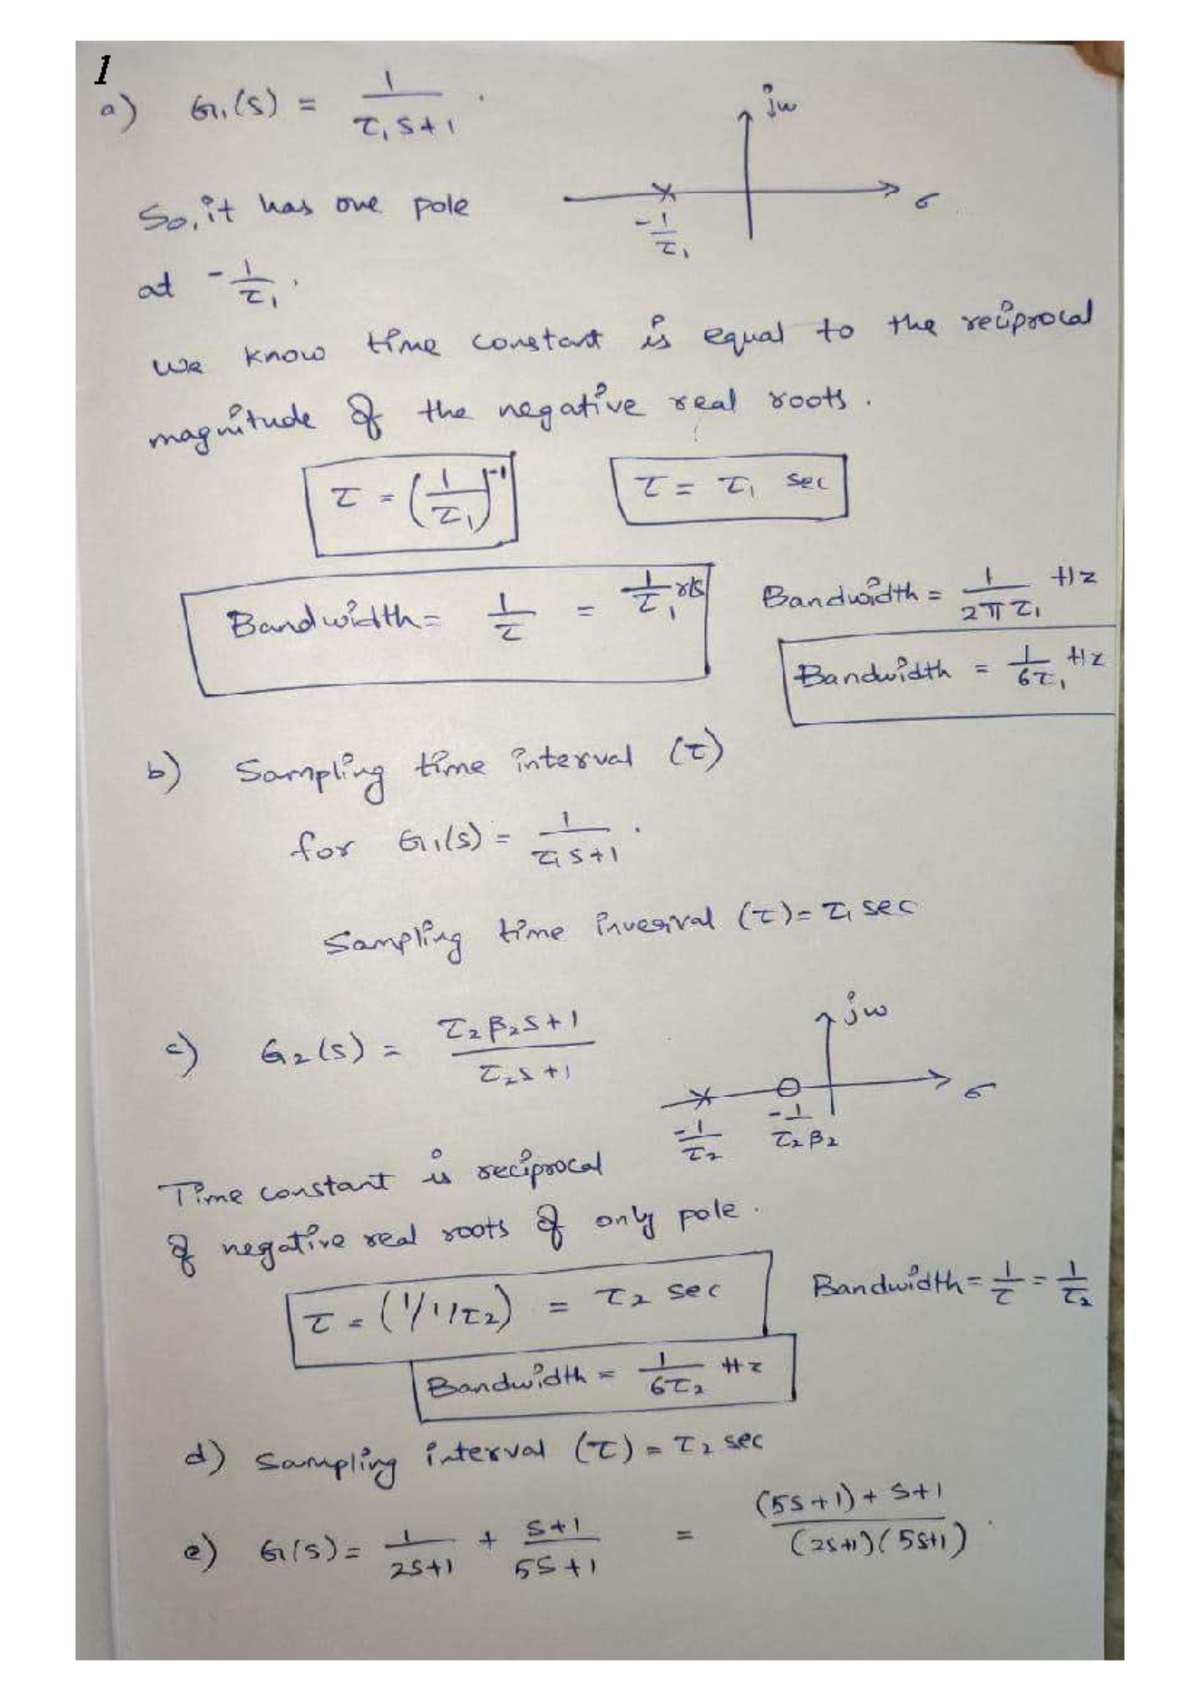 1
a) G₁(s) = 1/(τ₁s+1) .
jω
σ
-1/τ₁
So, it has one pole
at -1/τ₁ .
we know time constant is equal to the reciprocal
magnitude of the negative real roots .
τ = (1/τ₁)⁻¹
τ = τ₁ sec
Bandwidth = 1/τ = 1/τ₁ r/s
Bandwidth = 1/(2πτ₁) Hz
Bandwidth = 1/(6τ₁) Hz
b) Sampling time interval (τ)
for G₁(s) = 1/(τ₁s+1) .
Sampling time inverival (τ) = τ₁ sec
c) G₂(s) = (τ₂β₂s+1)/(τ₂s+1)
jω
σ
-1/τ₂
-1/(τ₂β₂)
Time constant is reciprocal
of negative real roots of only pole .
τ = (1/1/τ₂) = τ₂ sec
Bandwidth = 1/τ = 1/τ₂
Bandwidth = 1/(6τ₂) Hz
d) Sampling interval (τ) = τ₂ sec
e) G(s) = 1/(2s+1) + (s+1)/(5s+1) = ((5s+1)+s+1)/((2s+1)(5s+1)) .